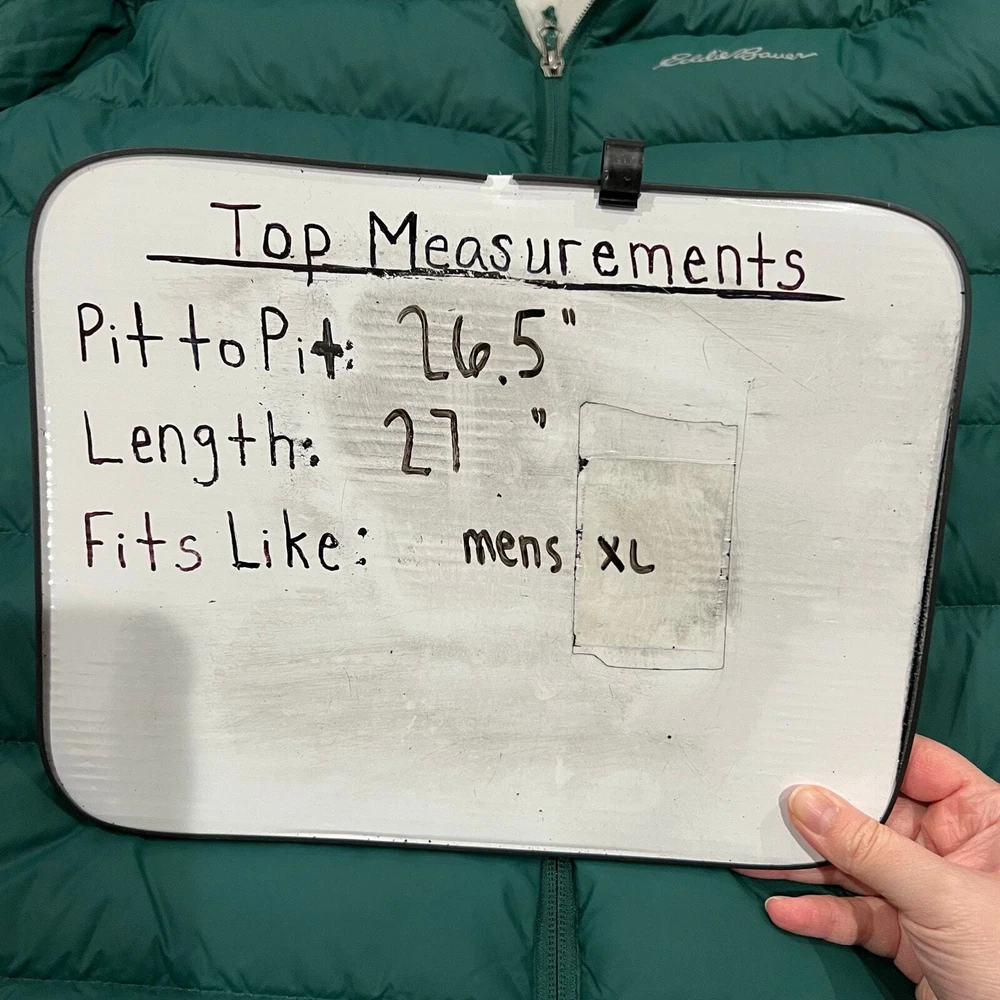 Eddie Bauer
Top Measurements
Pit to Pit: 26.5"
Length: 27 "
Fits Like: mens XL